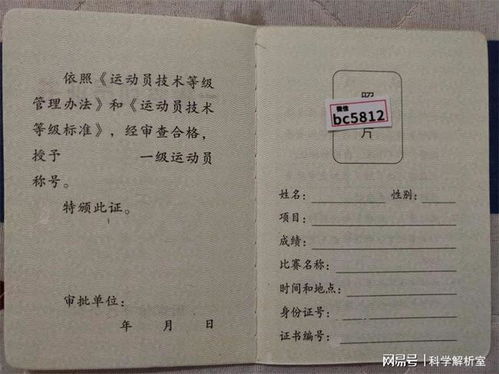 依照《运动员技术等级
管理办法》和《运动员技术
等级标准》，经审查合格，
授予 一级运动员
称号。
特颁此证。
审批单位：
年 月 日
照
微信
bc5812
片
姓名： 性别：
项目：
成绩：
比赛名称：
时间和地点：
身份证号：
证书编号：
网易号 | 科学解析室